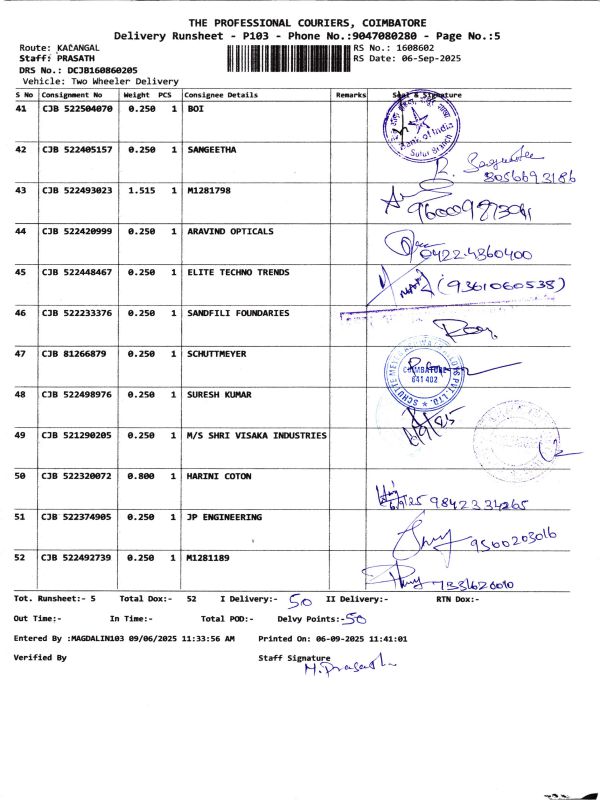 THE PROFESSIONAL COURIERS, COIMBATORE
Delivery Runsheet - P103 - Phone No.:9047080280 - Page No.:5
Route: KACANGAL RS No.: 1608602
Staff: PRASATH RS Date: 06-Sep-2025
DRS No.: DCJB160860205
Vehicle: Two Wheeler Delivery
S No Consignment No Weight PCS Consignee Details Remarks Seal & Signature
41 CJB 522504070 0.250 1 BOI
Bank of India
Sulur Branch
42 CJB 522405157 0.250 1 SANGEETHA
8056693186
43 CJB 522493023 1.515 1 M1281798
44 CJB 522420999 0.250 1 ARAVIND OPTICALS
0422-4360400
45 CJB 522448467 0.250 1 ELITE TECHNO TRENDS
(9361060538)
46 CJB 522233376 0.250 1 SANDFILI FOUNDARIES
47 CJB 81266879 0.250 1 SCHUTTMEYER
COIMBATORE
641 402
48 CJB 522498976 0.250 1 SURESH KUMAR
6/9/25
49 CJB 521290205 0.250 1 M/S SHRI VISAKA INDUSTRIES
50 CJB 522320072 0.800 1 HARINI COTON
6/9/25 9842334265
51 CJB 522374905 0.250 1 JP ENGINEERING
9500203016
52 CJB 522492739 0.250 1 M1281189
Tot. Runsheet:- 5 Total Dox:- 52 I Delivery:- 50 II Delivery:- RTN Dox:-
Out Time:- In Time:- Total POD:- Delvy Points:- 50
Entered By :MAGDALIN103 09/06/2025 11:33:56 AM Printed On: 06-09-2025 11:41:01
Verified By Staff Signature
M.Prasath